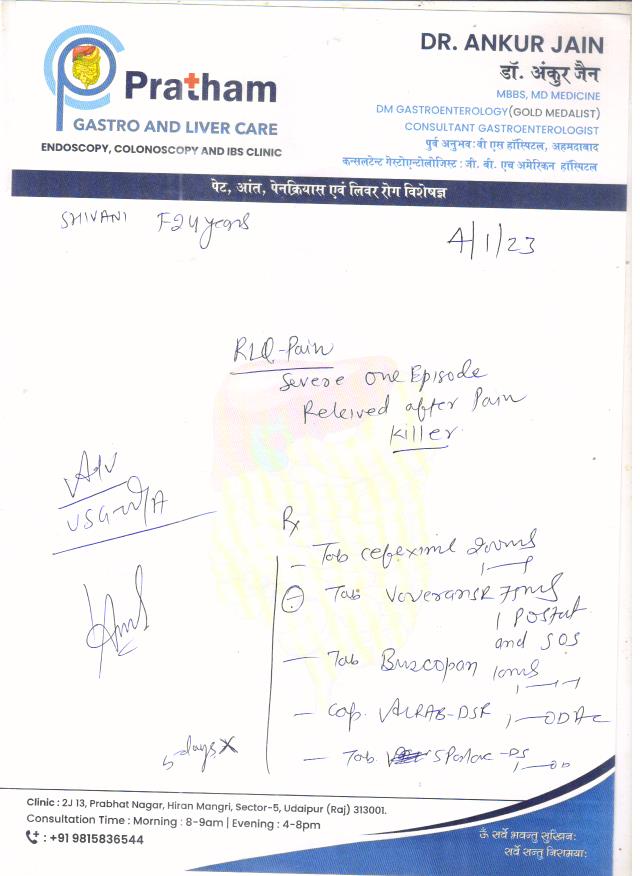 Pratham
GASTRO AND LIVER CARE
ENDOSCOPY, COLONOSCOPY AND IBS CLINIC
DR. ANKUR JAIN
डॉ. अंकुर जैन
MBBS, MD MEDICINE
DM GASTROENTEROLOGY(GOLD MEDALIST)
CONSULTANT GASTROENTEROLOGIST
पुर्व अनुभव : वी एस हॉस्पिटल, अहमदाबाद
कन्सलटेन्ट गेस्टोएन्टोलोजिस्ट : जी. बी. एच अमेरिकन हॉस्पिटल
पेट, आंत, पेनक्रियास एवं लिवर रोग विशेषज्ञ
SHIVANI F 24 years
4/1/23
RLQ-Pain
Severe one Episode
Releived after Pain
Killer
Adv
USG-W/A
Rx
- Tab cefexime 200mg
1—1
Tab Voveran SR 75mg
1 POSTut
and SOS
- Tab Buscopan 10mg
1—1—1
- Cap. VALRAB-DSR 1—OD AC
- Tab. SPorlac-DS
1—OD
5 days X
Clinic : 2J 13, Prabhat Nagar, Hiran Mangri, Sector-5, Udaipur (Raj) 313001.
Consultation Time : Morning : 8-9am | Evening : 4-8pm
: +91 9815836544
ॐ सर्वे भवन्तु सुखिनः
सर्वे सन्तु निरामयाः